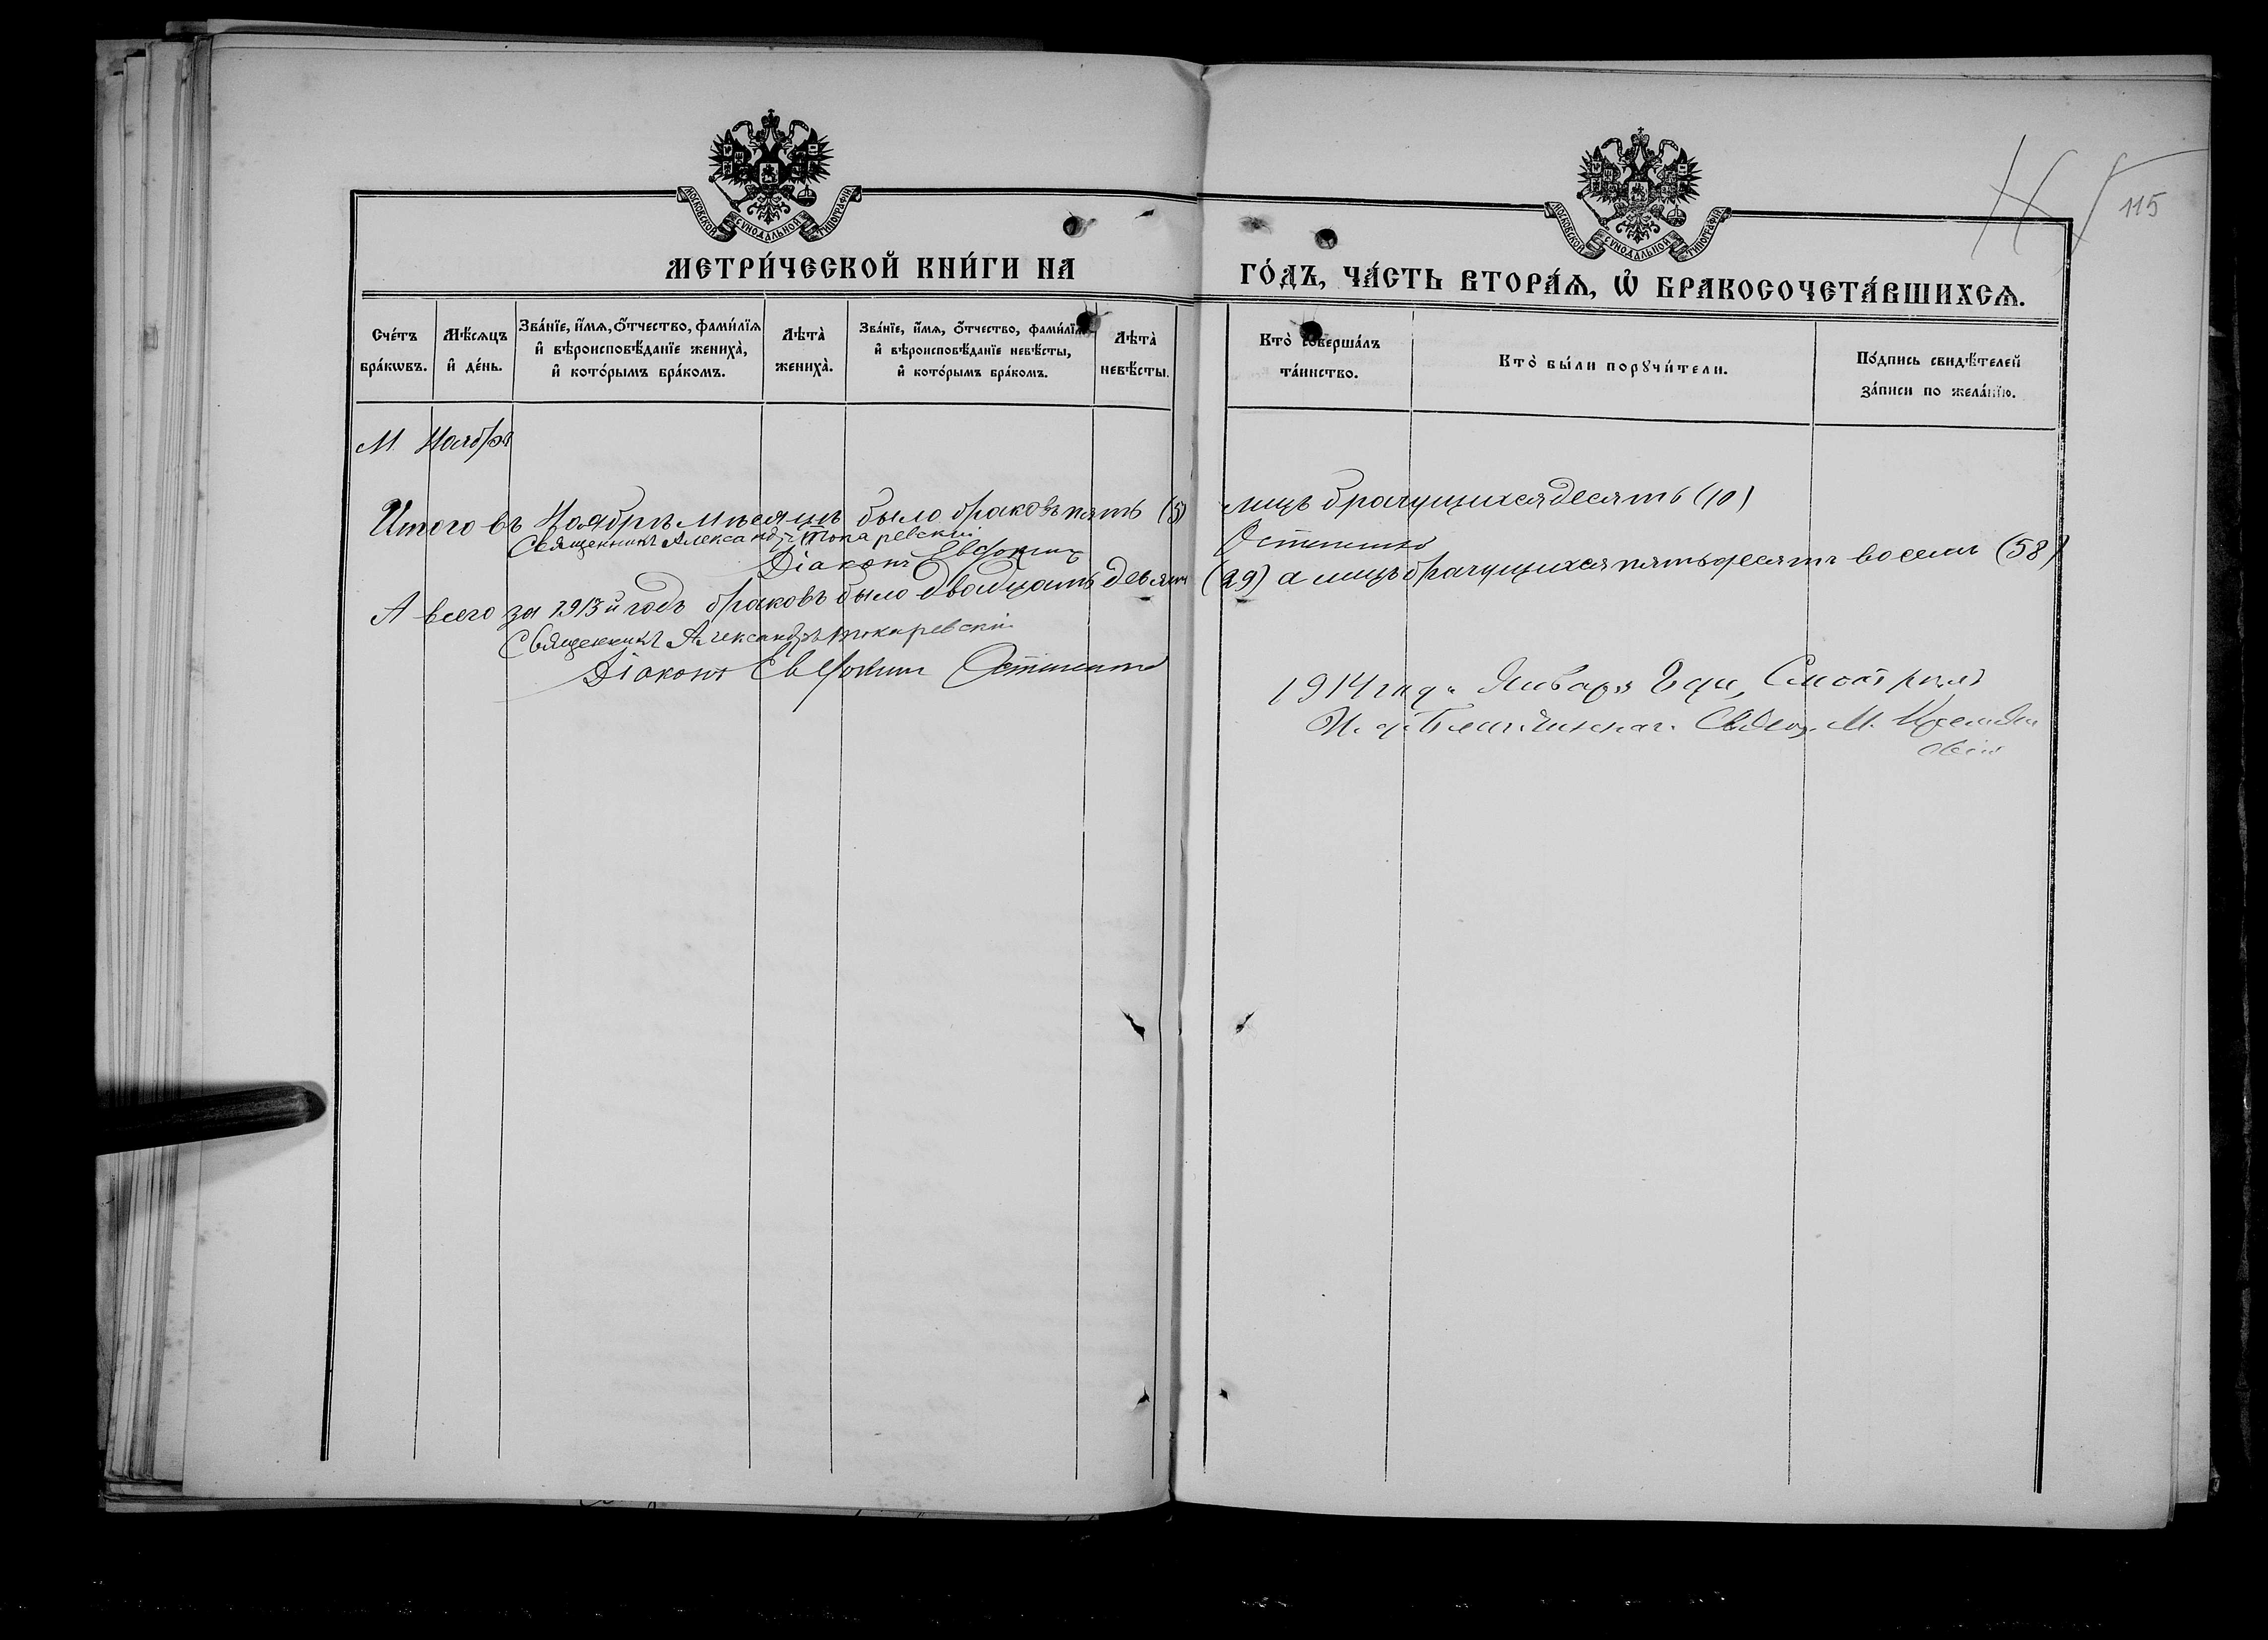 МОСКОВСКОЙ СѴНОДАЛЬНОЙ ТИПОГРАФІИ
МОСКОВСКОЙ СѴНОДАЛЬНОЙ ТИПОГРАФІИ
115
МЕТРИ́ЧЕСКОЙ КНИ́ГИ НА ГО́ДЪ, ЧА́СТЬ ВТОРА́Ѧ, Ѽ БРАКОСОЧЕТА́ВШИХСѦ.
Сче́тъ
бра́кѡвъ.
Мѣ́сяцъ
и҆ де́нь.
Зва́нїе, и҆́мѧ, ѻ҆́тчество, фами́лїѧ
и҆ вѣроисповѣ́данїе жениха̀,
и҆ кото́рымъ бра́комъ.
Лѣта̀
жениха̀.
Зва́нїе, и҆́мѧ, ѻ҆́тчество, фами́лїѧ
и҆ вѣроисповѣ́данїе невѣ́сты,
и҆ кото́рымъ бра́комъ.
Лѣта̀
невѣ́сты.
Кто̀ соверша́лъ
та́инство.
Кто̀ бы́ли порꙋчи́тели.
По́дпись свидѣ́телей
за́писи по жела́нїю.
М. Ноябрь
Итого въ Ноябрѣ мѣсяцѣ было браковъ пять (5) лицъ брачущихся десять (10)
Священникъ Александръ Токаревскій
Діаконъ Евфоким
А всего за 1913й годъ браковъ было двадцать девять (29) а лицъ брачущихся пятьдесятъ восемь (58)
Священникъ Александръ Токаревскій
Діаконъ
1914 года Января дня, Смотрѣлъ
М.